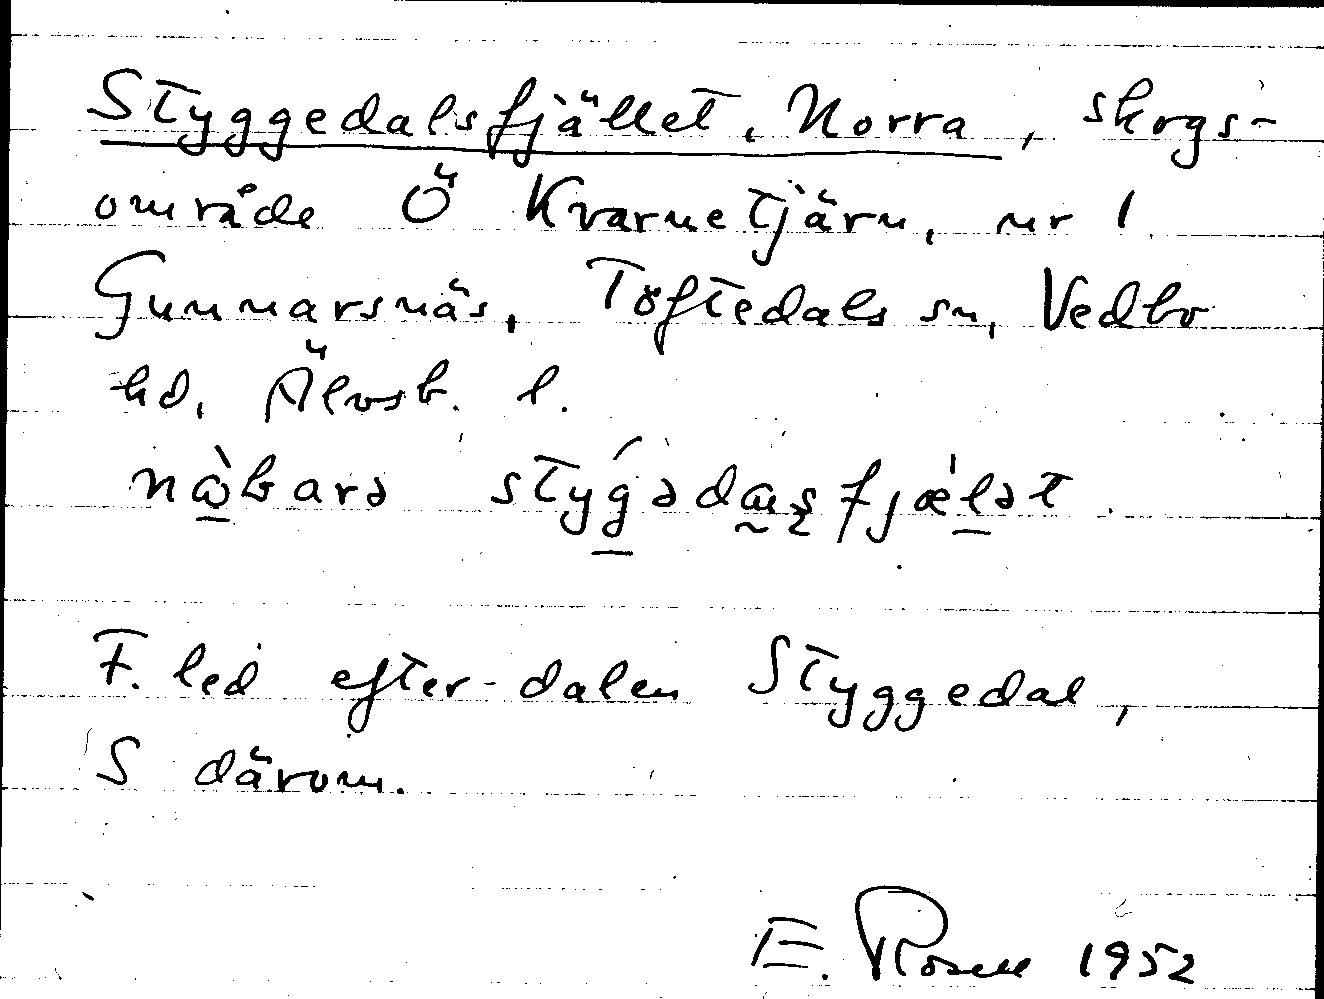 Styggedalsfjället, Norra, skogs-
område Ö Kvarnetjärn, nr 1
Gunnarsnäs, Töftedals sn, Vedbo
hd, Älvsb. l.
F. led efter dalen Styggedal,
S därom.
E. Rosell 1952